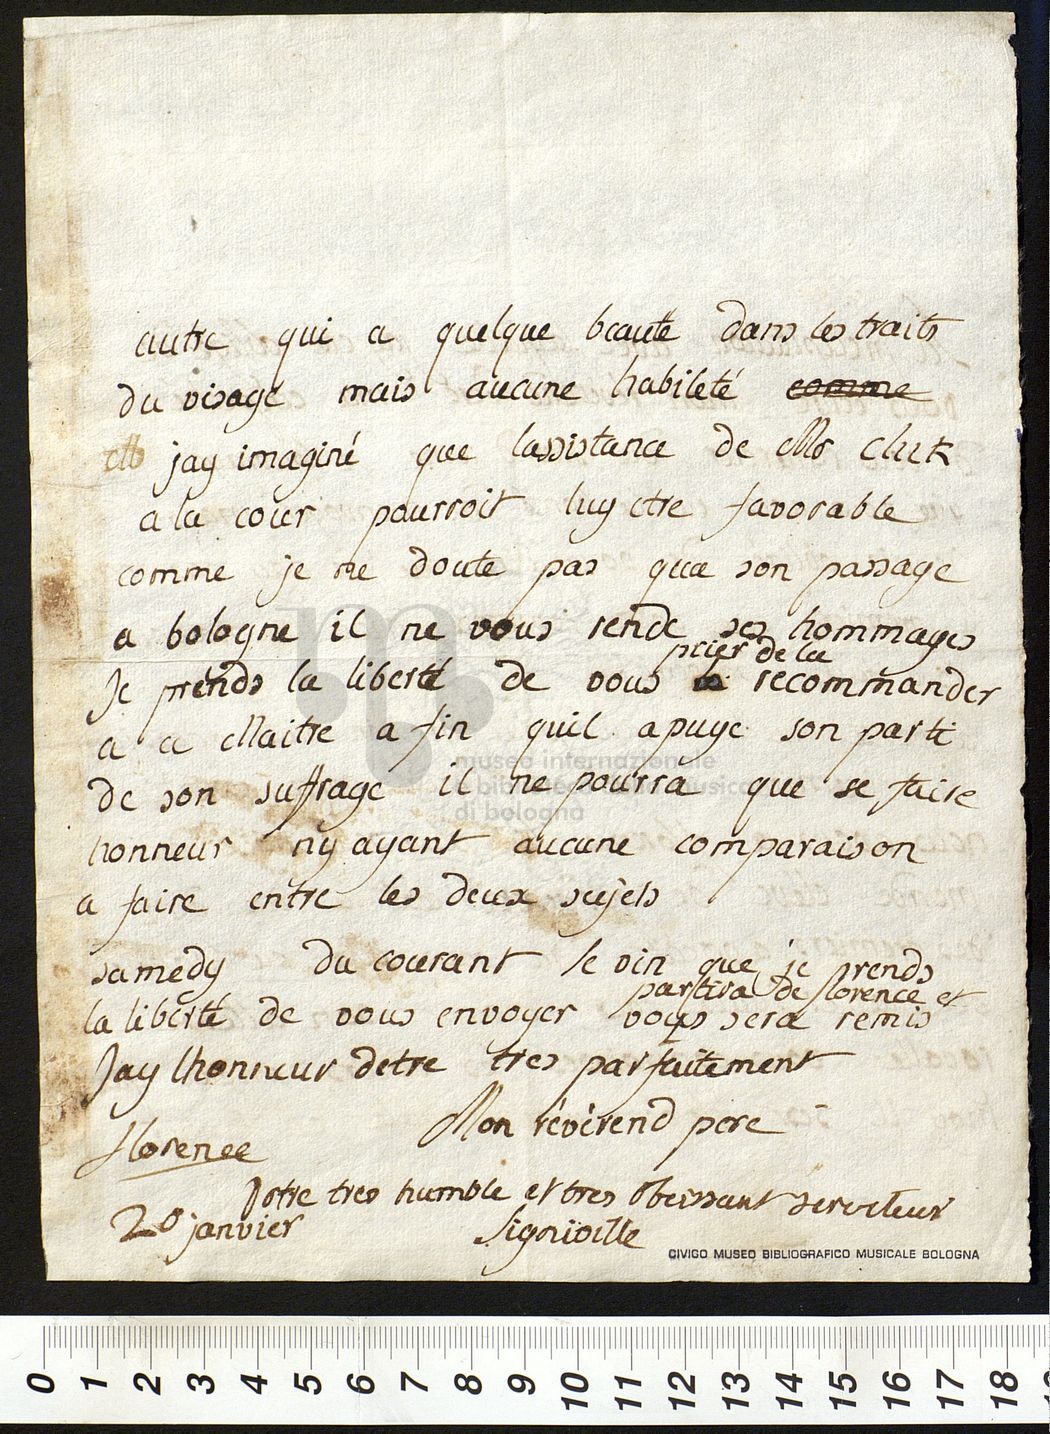 autre qui a quelque beauté dans les traits
du visage mais aucune habileté comme
jay imaginé que lassistance de Mr Cluk
a la cour pourroit luy etre favorable
comme je ne doute pas que son passage
a bologne il ne vous rende ses hommages
prier de la
Je prends la liberté de vous recommander
a ce Maitre a fin quil apuye son parti
de son suffrage il ne pourra que se faire
honneur ny ayant aucune comparaison
a faire entre les deux sujets
samedy du courant le vin que je prends
partira de florence et
la liberté de vous envoyer vous sera remis
Jay lhonneur detre tres parfaitement
Mon révérend pere
florence
Votre tres humble et tres obeissant serviteur
20 janvier Signioille
CIVICO MUSEO BIBLIOGRAFICO MUSICALE BOLOGNA
museo internazionale
e biblioteca della musica
di bologna
0 1 2 3 4 5 6 7 8 9 10 11 12 13 14 15 16 17 18